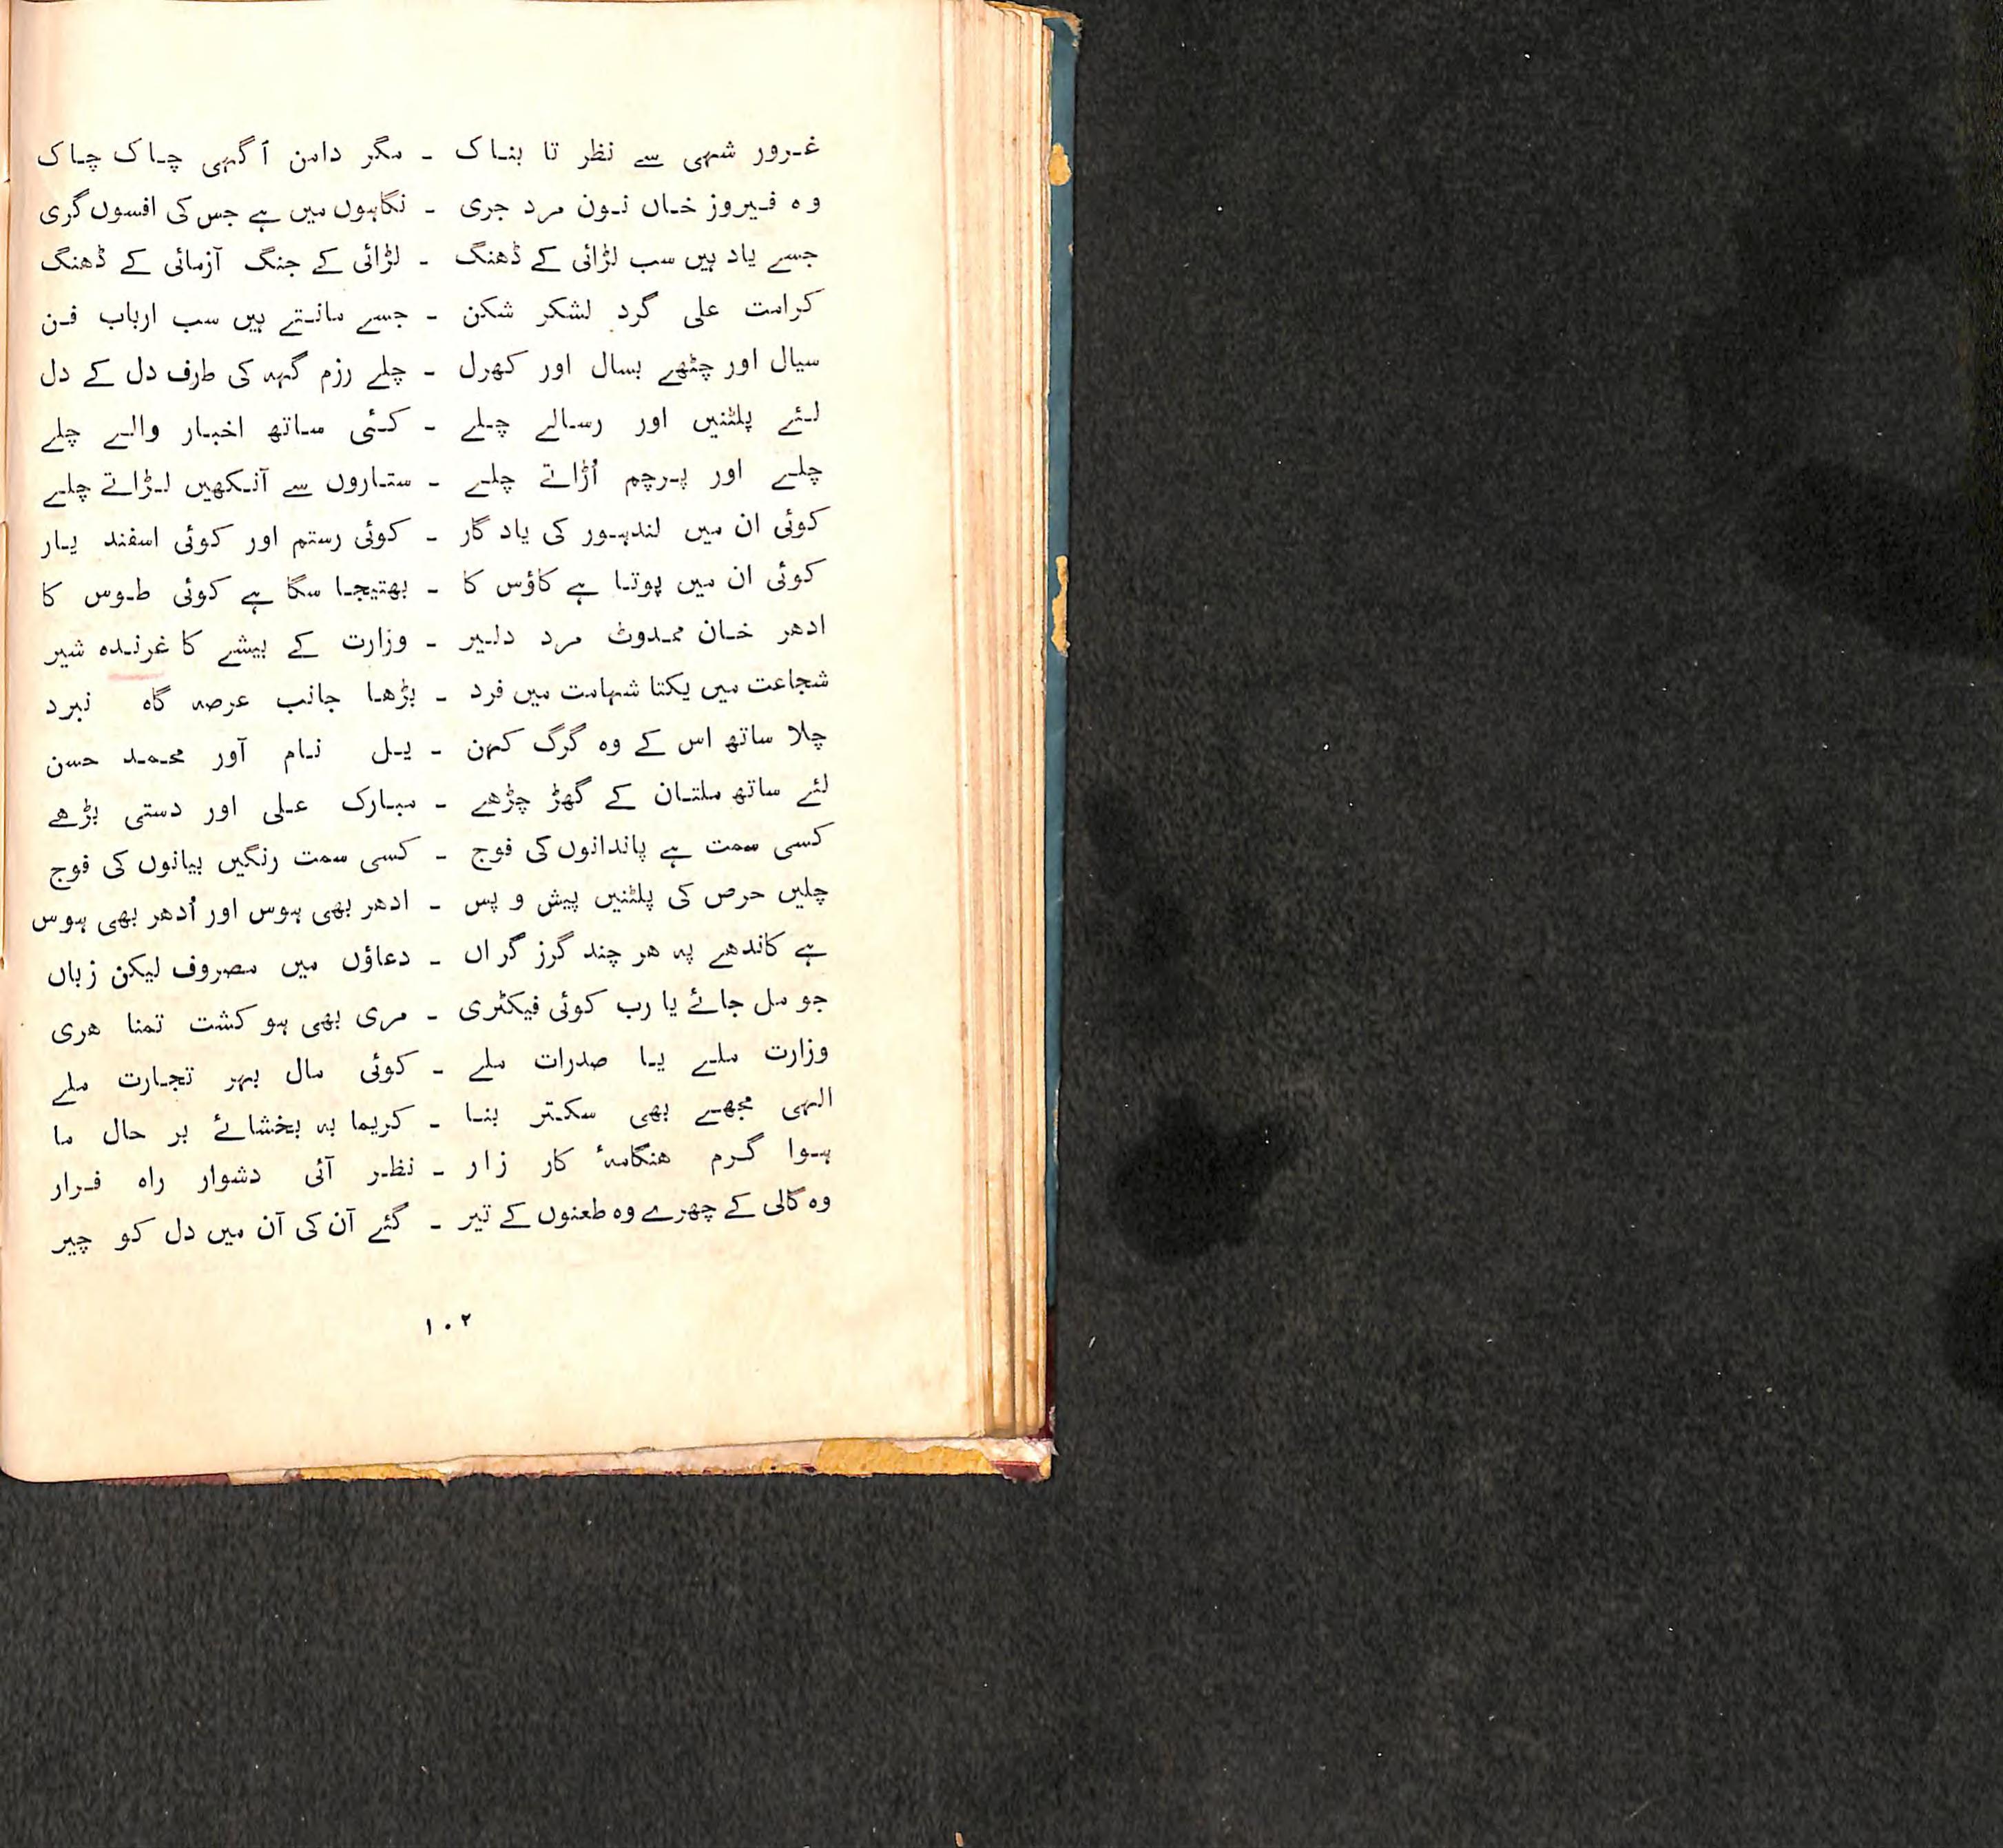 غرور شہی سے نظر تا بناک - مگر دامن آگہی چاک چاک
وہ فیروز خاں نون مرد جری - نگاہوں میں ہے جس کی افسوں گری
جسے یاد ہیں سب لڑائی کے ڈھنگ - لڑائی کے جنگ آزمائی کے ڈھنگ
کرامت علی گرد لشکر شکن - جسے مانتے ہیں سب ارباب فن
سیال اور چٹھے بسال اور کھرل - چلے رزم گہہ کی طرف دل کے دل
لئے پلٹنیں اور رسالے چلے - کئی ساتھ اخبار والے چلے
چلے اور پرچم اُڑاتے چلے - ستاروں سے آنکھیں لڑاتے چلے
کوئی ان میں لندہور کی یاد گار - کوئی رستم اور کوئی اسفند یار
کوئی ان میں پوتا ہے کاؤس کا - بھتیجا سگا ہے کوئی طوس کا
ادھر خان ممدوٹ مرد دلیر - وزارت کے بیشے کا غرندہ شیر
شجاعت میں یکتا شہامت میں فرد - بڑھا جانب عرصہ گاہ نبرد
چلا ساتھ اس کے وہ گرگ کہن - یل نام آور محمد حسن
لئے ساتھ ملتان کے گھڑ چڑھے - مبارک علی اور دستی بڑھے
کسی سمت ہے پاندانوں کی فوج - کسی سمت رنگیں بیانوں کی فوج
چلیں حرص کی پلٹنیں پیش و پس - ادھر بھی ہوس اور اُدھر بھی ہوس
ہے کاندھے پہ ھر چند گرز گراں - دعاؤں میں مصروف لیکن زباں
جو مل جائے یا رب کوئی فیکٹری - مری بھی ہو کشت تمنا ھری
وزارت ملے یا صدرات ملے - کوئی مال بہر تجارت ملے
الہی مجھے بھی سکتر بنا - کریما بہ بخشائے بر حال ما
ہوا گرم ھنگامۂ کار زار - نظر آئی دشوار راہ فرار
وہ گالی کے چھرے وہ طعنوں کے تیر - گئے آن کی آن میں دل کو چیر
۱۰۲